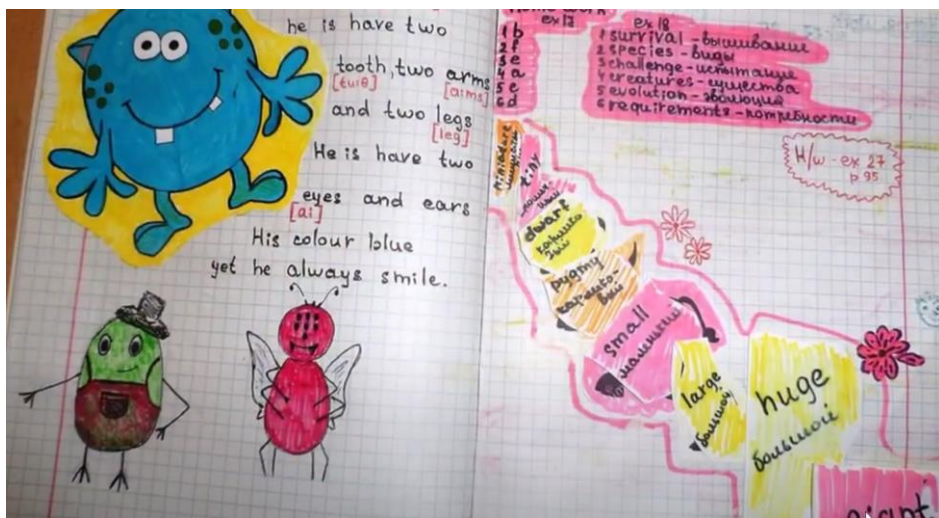 he is have two
tooth, two arms
[tuiθ]
[aims]
and two legs
[leg]
He is have two
eyes and ears
[ai]
His colour blue
yet he always smile.
ex 17
ex 18
1 b
2 f
3 e
4 a
5 c
6 d
1 survival - вышивание
2 species - виды
3 challenge - испытание
4 creatures - существа
5 evolution - эволюция
6 requirements - потребности
H/w - ex 27
p 95
miniature
tiny
dwarf
pygmy
small
маленький
large
большой
huge
большой
giant